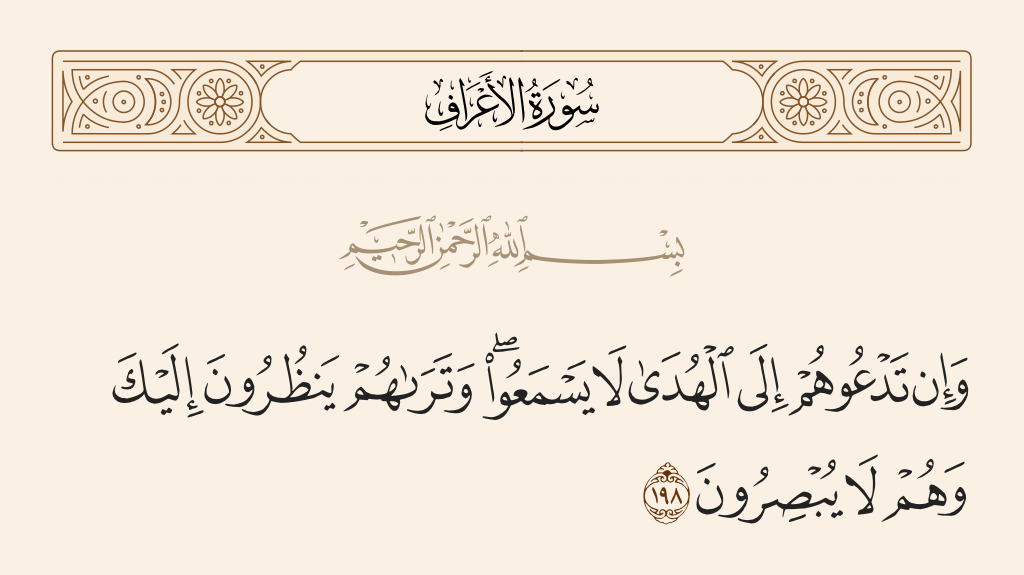 سُورَةُ الأَعْرَافِ
بِسْمِ ٱللَّهِ ٱلرَّحْمَٰنِ ٱلرَّحِيمِ
وَإِن تَدْعُوهُمْ إِلَى ٱلْهُدَىٰ لَا يَسْمَعُوا۟ ۖ وَتَرَىٰهُمْ يَنظُرُونَ إِلَيْكَ
وَهُمْ لَا يُبْصِرُونَ ١٩٨